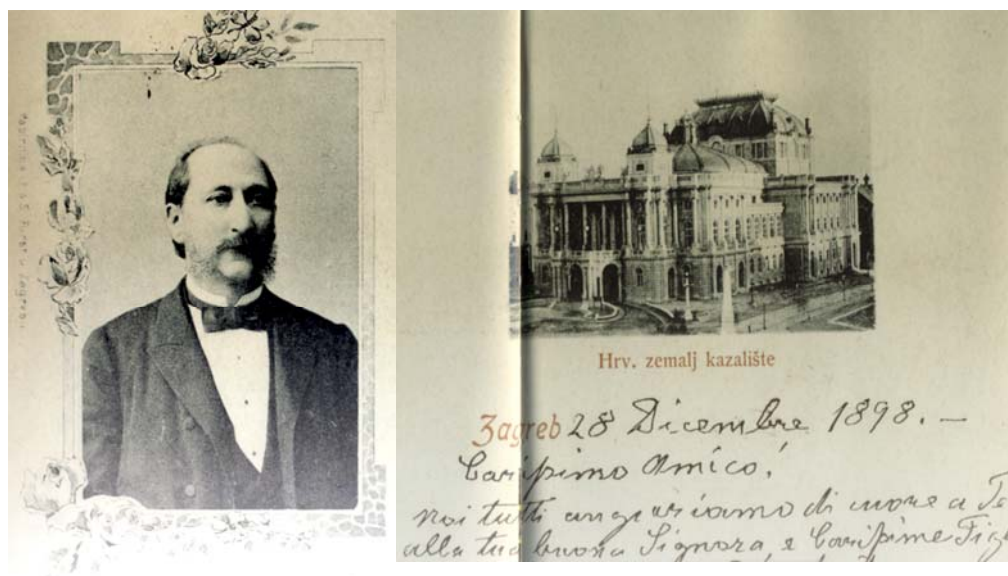 Hrv. zemalj kazalište
Zagreb 28 Dicembre 1898. —
Carissimo Amico!
noi tutti anguriamo di cuore a
alla tua buona Signora, e Carissime